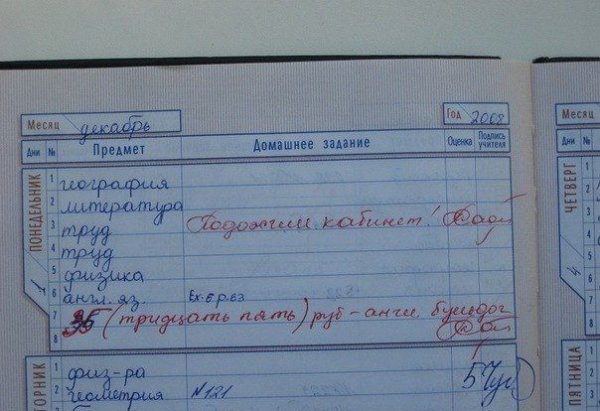 Месяц декабрь Год 2008
Дни № Предмет Домашнее задание Оценка Подпись учителя
ПОНЕДЕЛЬНИК
1
1 география
2 литература
3 труд Подожгли кабинет!
4 труд
5 физика
6 англ. яз. Ex. 6 p. 63
7 35 (тридцать пять) руб - англ. бульдог
8
ВТОРНИК
1 физ-ра
2 геометрия №121 5
Месяц
Дни №
ЧЕТВЕРГ
4
1
2
3
4
5
6
7
8
ПЯТНИЦА
1
2